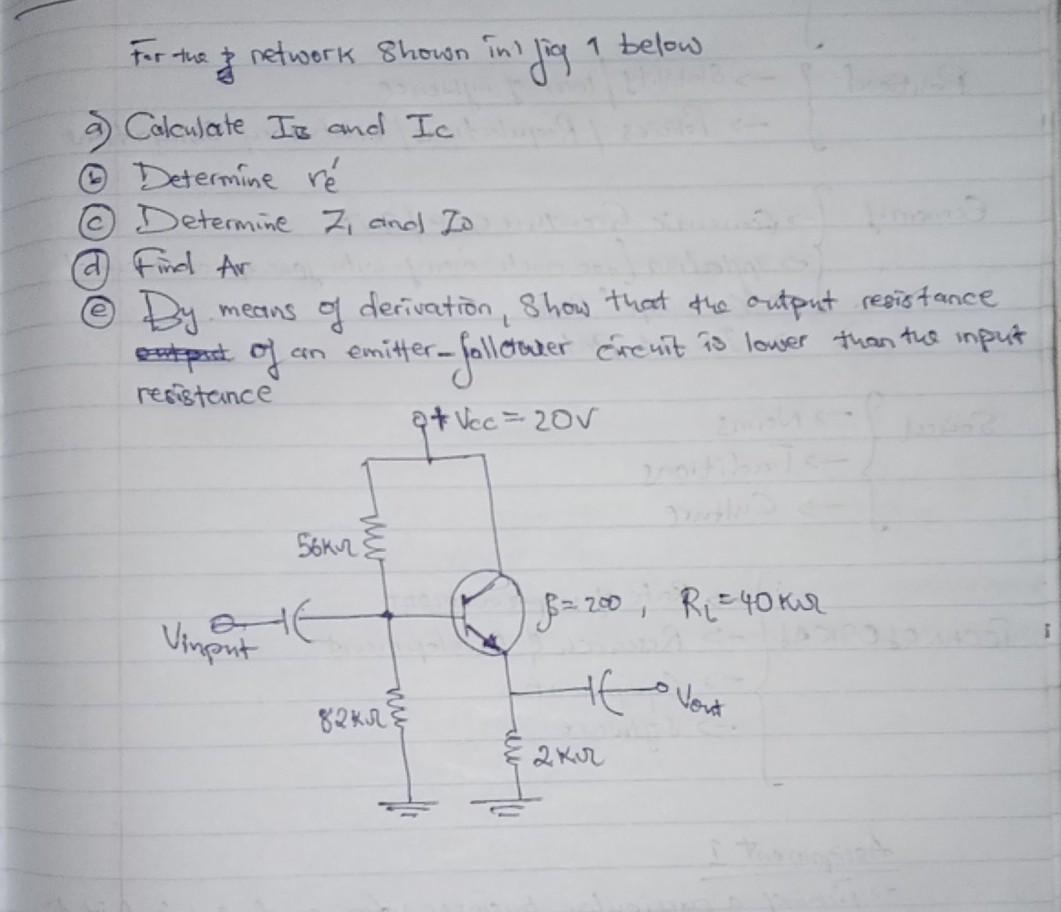 For the network shown in fig 1 below
a) Calculate IB and Ic
b) Determine re'
c) Determine Zi and Zo
d) Find Av
e) By means of derivation, show that the output resistance
of an emitter-follower circuit is lower than the input
resistance
+ Vcc = 20V
56KΩ
β = 200 , RL = 40KΩ
Vinput
Vout
82KΩ
2KΩ